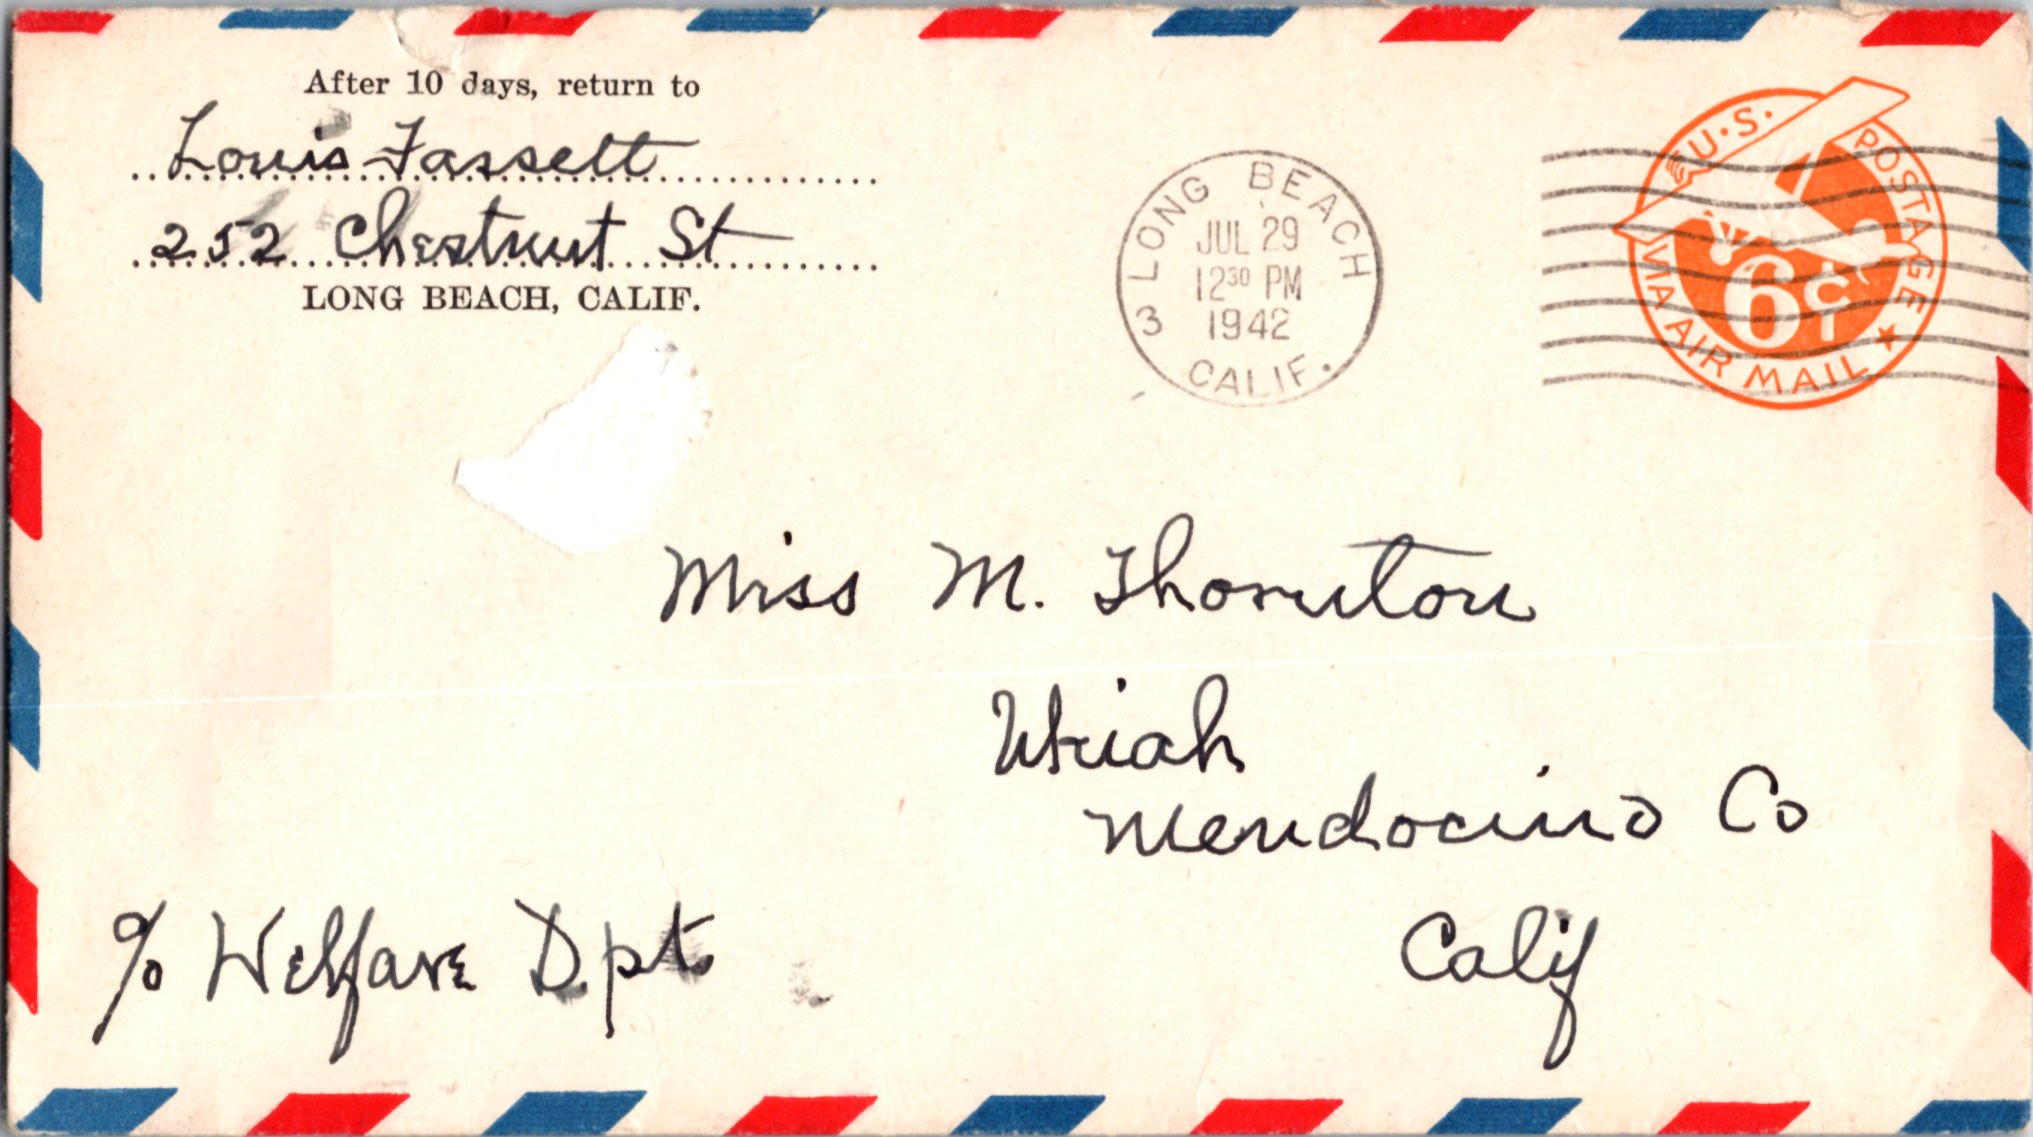 After 10 days, return to
Louis Fassett
252 Chestnut St
LONG BEACH, CALIF.
LONG BEACH
JUL 29
12 30 PM
1942
3
CALIF.
U.S. POSTAGE
6¢
VIA AIR MAIL
Miss M. Thornton
Ukiah
Mendocino Co
Calif
c/o Welfare Dpt